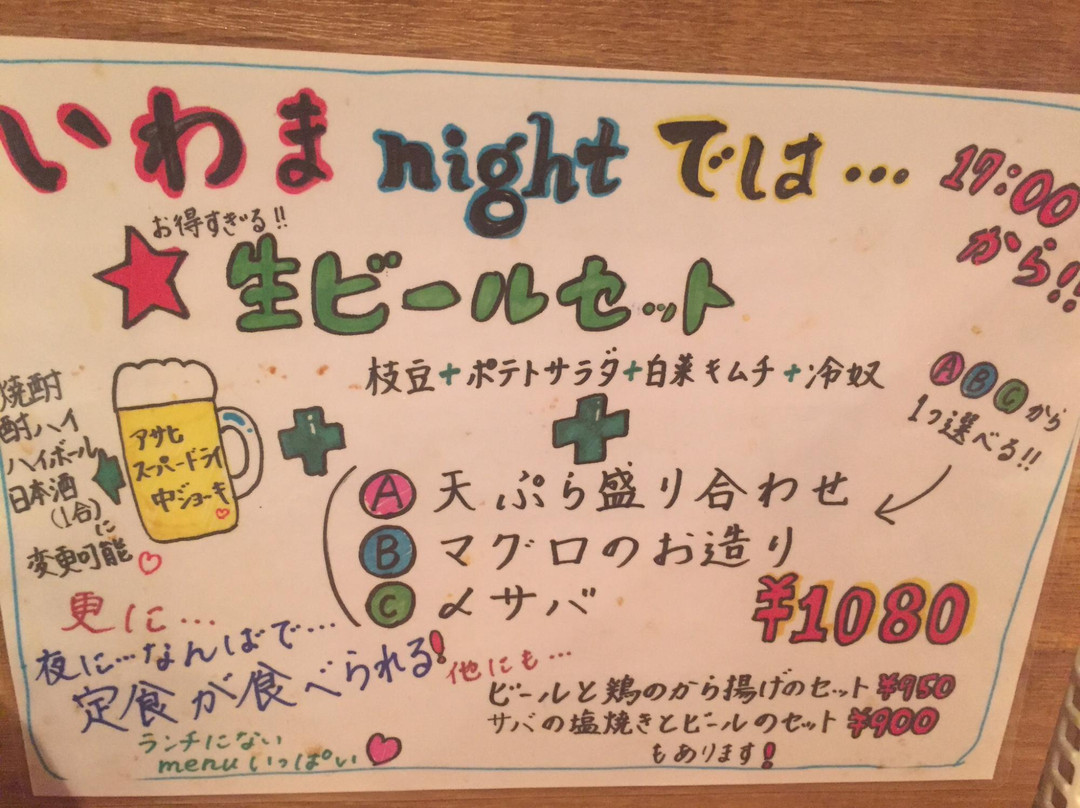 いわま night では…
17:00
から!!
お得すぎる!!
生ビールセット
枝豆+ポテトサラダ+白菜キムチ+冷奴
ABCから
1つ選べる!!
焼酎
酎ハイ
ハイボール
日本酒
(1合)に
変更可能
アサヒ
スーパードライ
中ジョーキ
A 天ぷら盛り合わせ
B マグロのお造り
C 〆サバ
¥1080
更に…
夜に…なんばで…
定食が食べられる!
ランチにない
menuいっぱい
他にも…
ビールと鶏のから揚げのセット ¥950
サバの塩焼きとビールのセット ¥900
もあります!